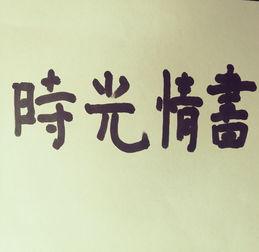 時光情書